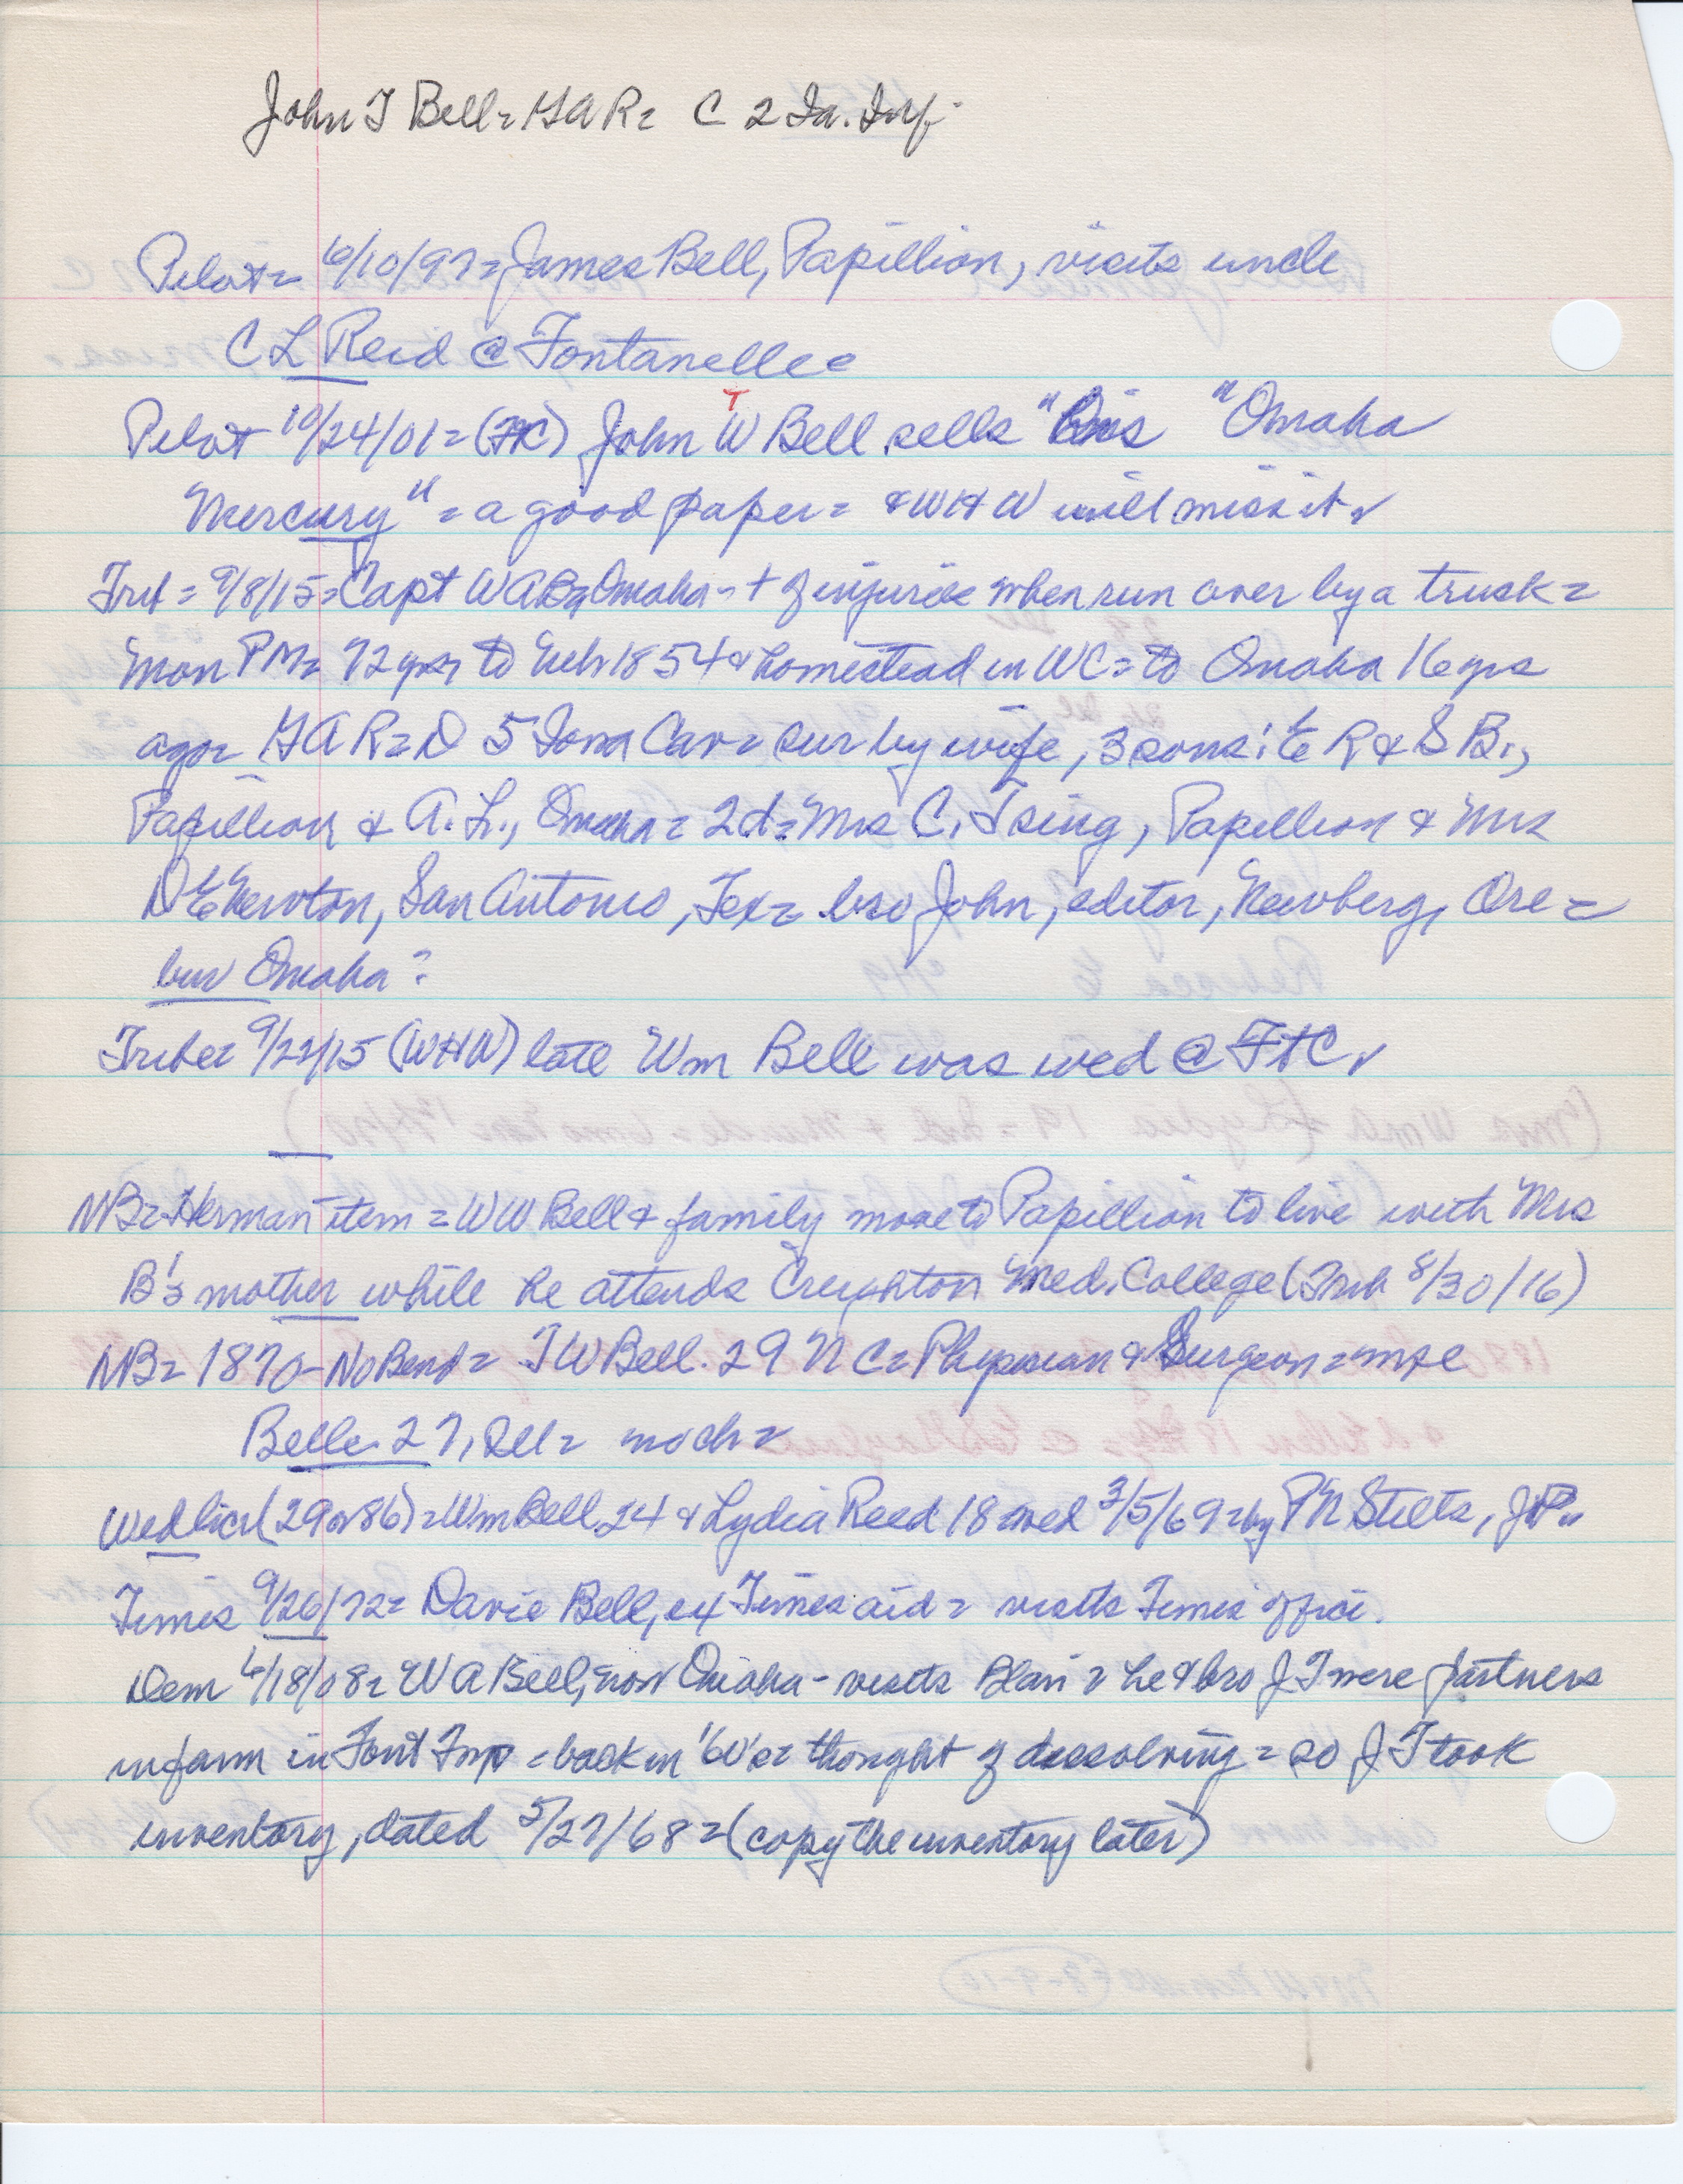 John T Bell = GAR = C 2 Ia. Inf.
Pilot = 6/10/97 = James Bell, Papillion, visits uncle
C L Reid @ Fontanelle =
Pilot 10/24/01 = John W T Bell sells "his "Omaha
Mercury" = a good paper = & WHW will miss it
Trib = 9/8/15 = Capt WAB = Omaha - + of injuries when run over by a truck =
Mon PM = 72 yrs to Neb 1854 & homestead in WC = to Omaha 16 yrs
ago = GAR = D 5 Iowa Cav = sur by wife, 3 sons: E R & S B.,
Papillion & A. L., Omaha = 2d = Mrs C. Tsing, Papillion & Mrs
Newton, San Antonio, Tex = bro John, editor, Newberg, Ore =
bur Omaha?
Tribe = 9/22/15 (WHW) late Wm Bell was wed @ FtC
NB = Herman item = W W Bell & family move to Papillion to live with Mrs
B's mother while he attends Creighton Med. College (Trib 8/30/16)
NB = 1870 - No Bend = T W Bell. 29 N C = Physician & Surgeon =
Belle 27, Ill = no ch =
Wed lic (29 or 86) = Wm Bell 24 & Lydia Reed 18 wed 3/5/69 = by P N Stilts, JP =
Times 9/26/72 = Davie Bell, ex Times aid = visits Times office.
Dem 6/18/08 = W A Bell, now Omaha - visits Blair = he & bro J T were partners
in farm in Font Tmp = back in '60's = thought of dissolving = so J T took
inventory, dated 5/27/68 = (copy the inventory later)